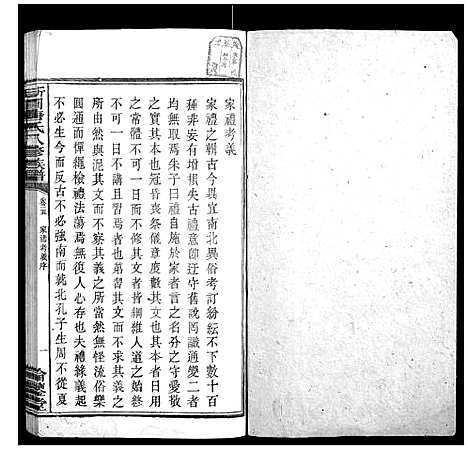 家禮考義
家禮之輯古今異宜南北異俗考訂紛紜不下數十百
種非妄有增損失古禮意卽迂守舊說罔識通變二者
均無取焉朱子曰禮自施於家者言之名分之守愛敬
之實其本也冠昏喪祭儀章度數其文也其本者日用
之當體不可一日不講其文者皆綱維人道之始終
不可一日不講且習焉者也弟習其文而不求其義之
所由然與泥其文而不察其義之所當然無怪流俗樂
圓通而憚繩檢禮法蕩焉無復人心存也夫禮緣義起
不必生今而反古不必強南而就北孔子生周不從夏
氏八修族譜
卷三五
家禮考義序
一